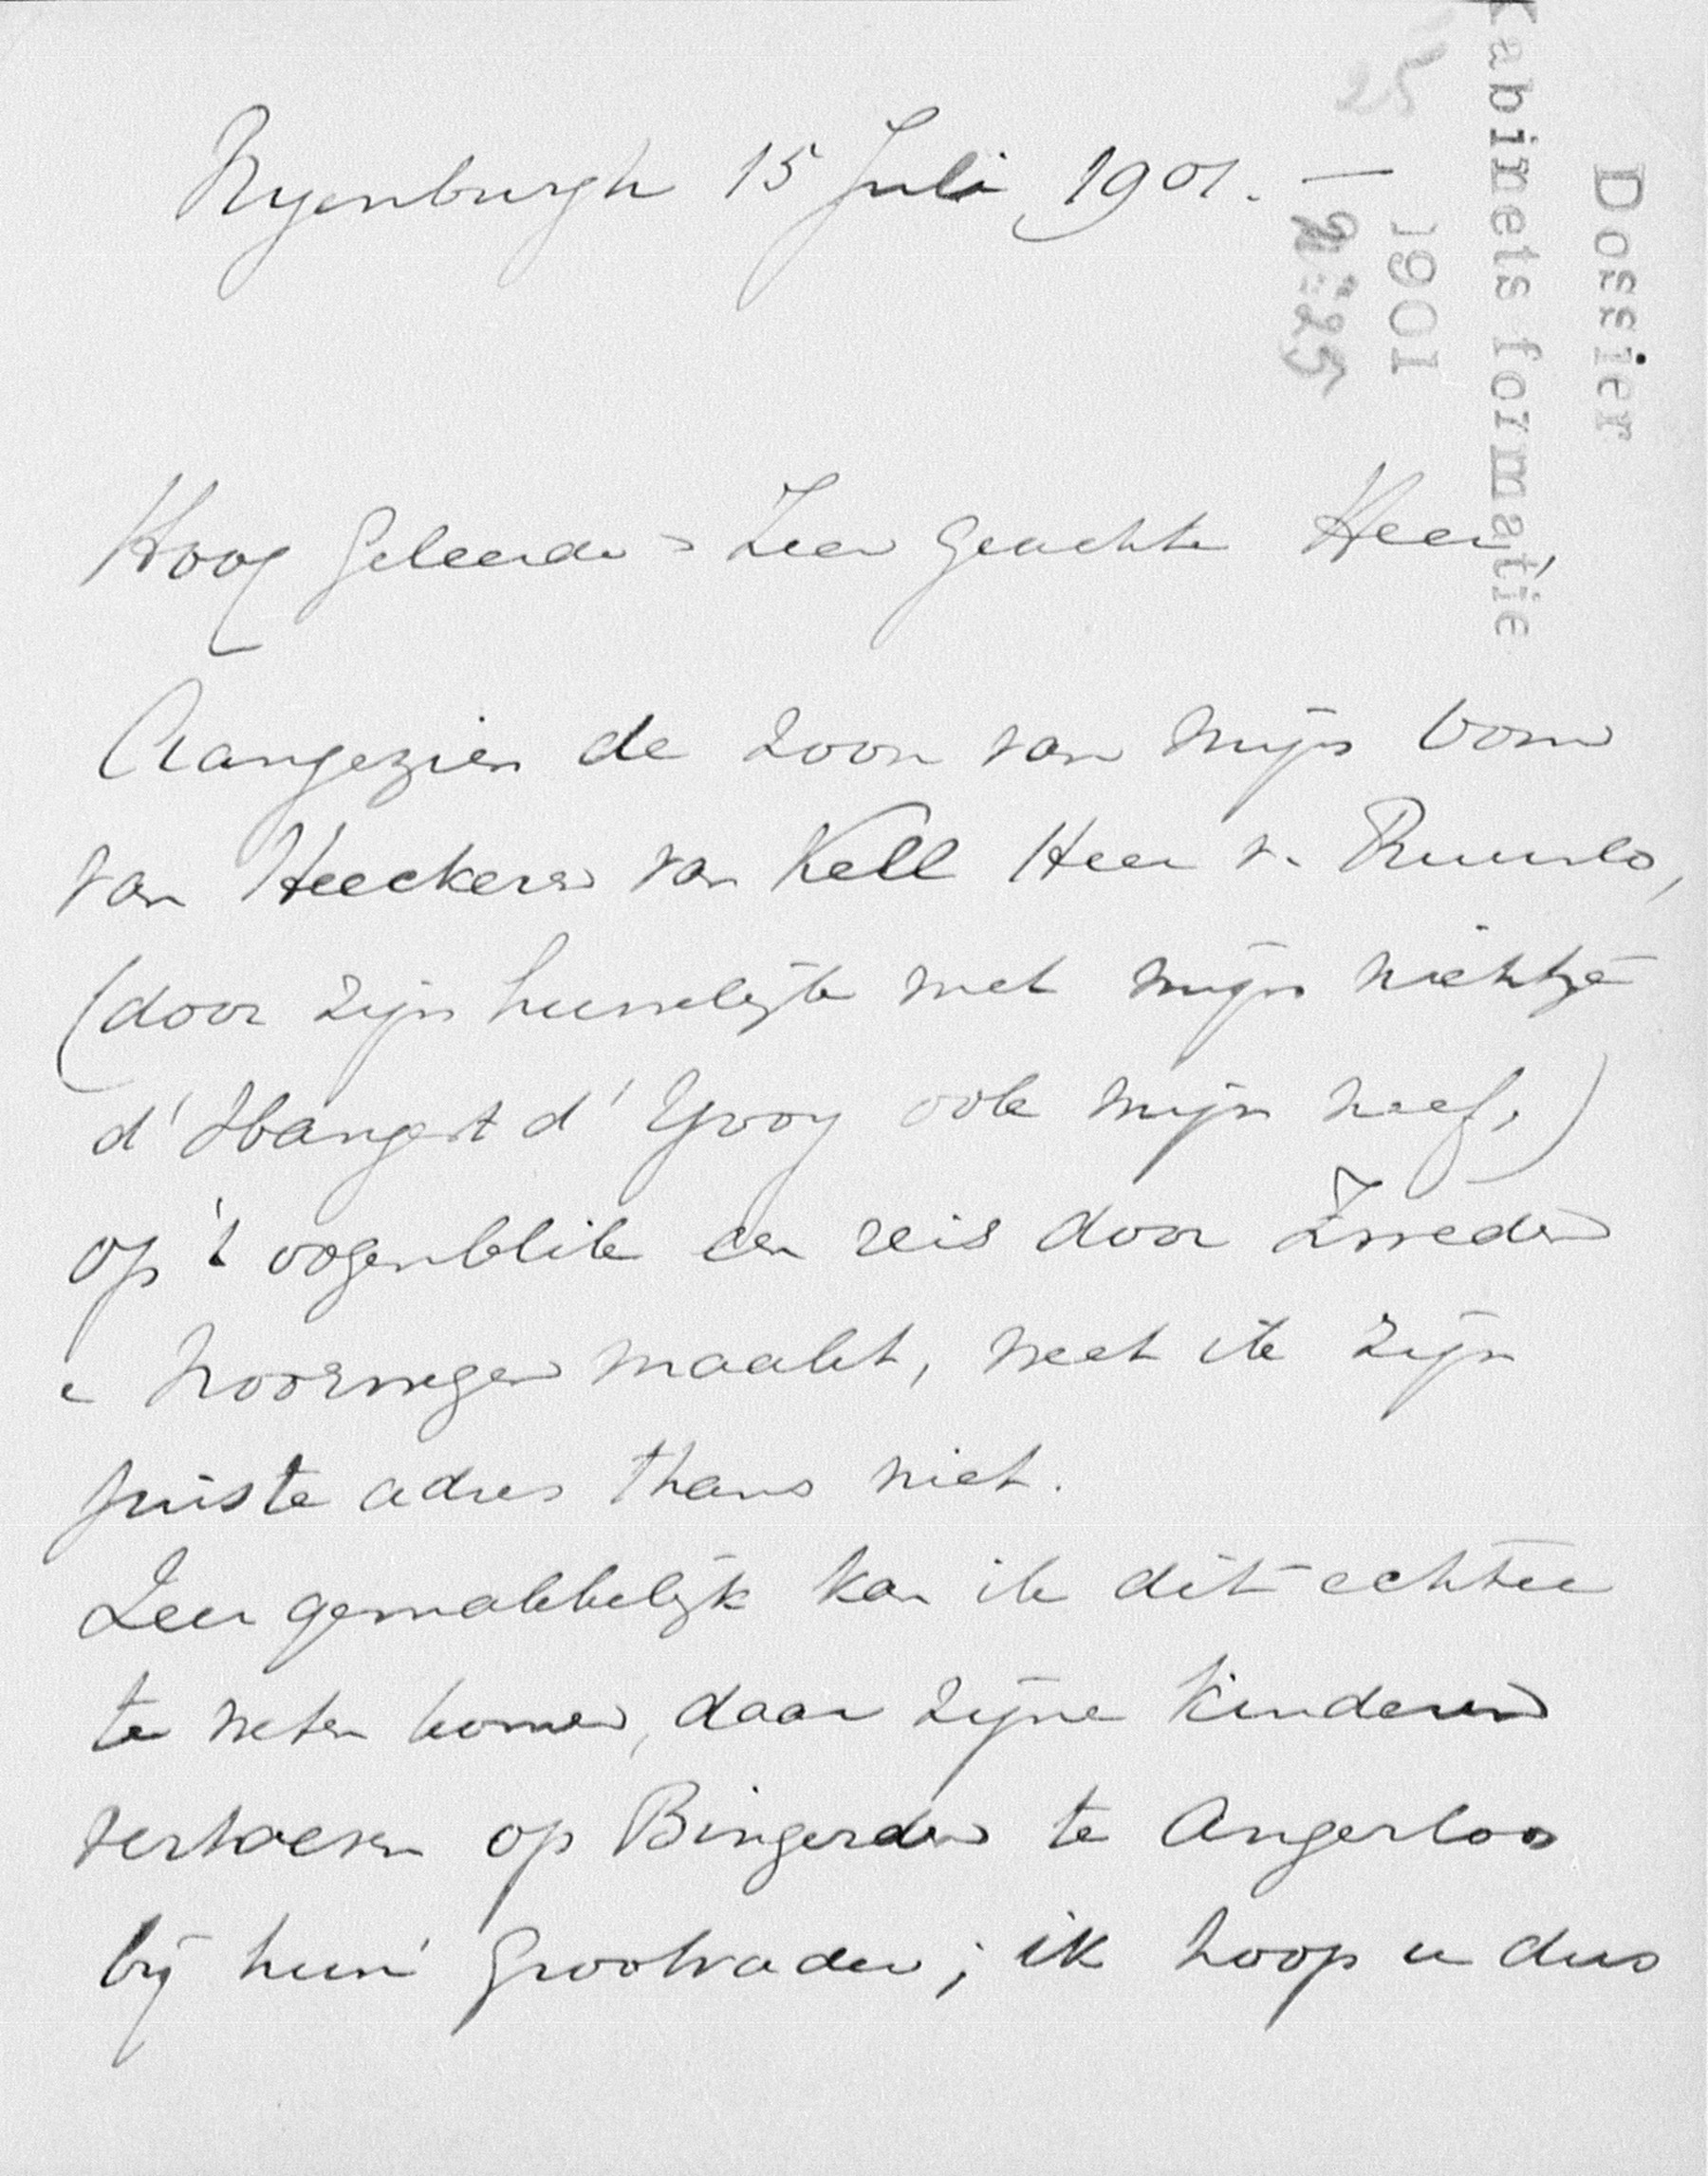 25
Dossier
Kabinets formatie
1901
N: 25
Nyenburgh 15 Juli 1901. —
Hoog Geleerde Zeer Geachte Heer,
Aangezien de zoon van mijn Oom
van Heeckeren van Kell Heer v. Ruurlo,
(door zijn huwelijk met mijn nichtje
d'Hangest d'Yvoy ook mijn neef,)
op 't oogenblik een reis door Zweden
e Noorwegen maakt, weet ik zijn
juiste adres thans niet.
Zeer gemakkelijk kan ik dit echter
te weten komen, daar zijne kinderen
vertoeven op Bingerden te Angerloo
bij hun Grootvader; ik hoop u dus